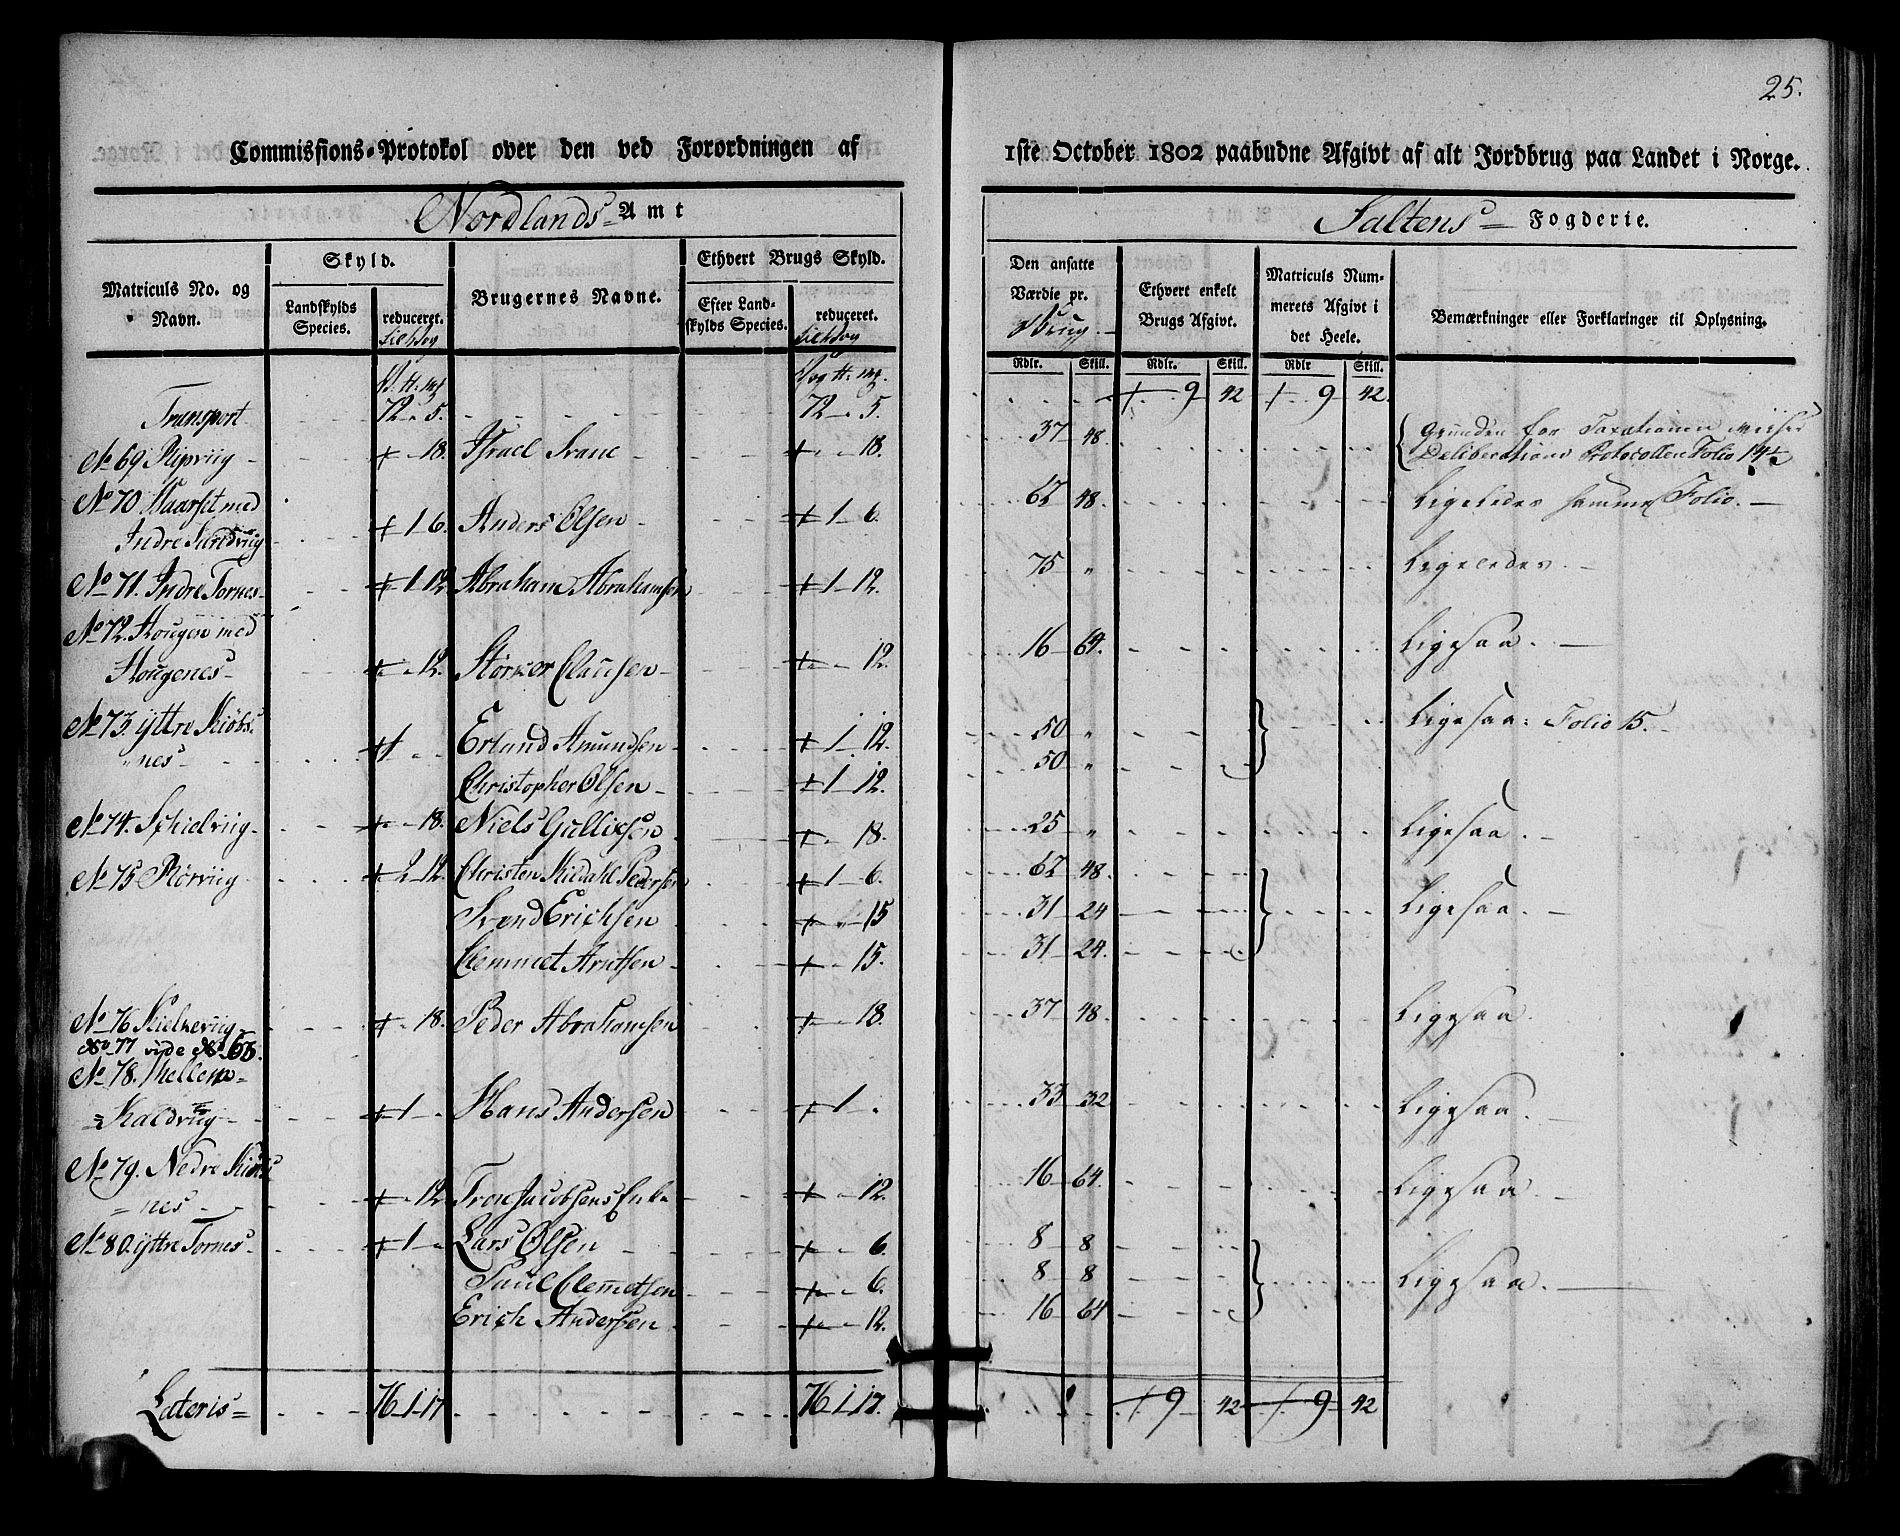 25.
Commissions-Protokol over den ved Forordningen af 1ste October 1802 paabudne Afgivt af alt Jordbrug paa Landet i Norge.
Nordlands Amt
Saltens Fogderie.
Matriculs No. og Navn.
Skyld.
Landskylds Species.
reduceret.
Brugernes Navne.
Ethvert Brugs Skyld.
Efter Landskylds Species.
reduceret.
Den ansatte Værdie pr. Brug
Ethvert enkelt Brugs Afgivt.
Matriculs Nummerets Afgivt i det Heele.
Bemærkninger eller Forklaringer til Oplysning.
Rdlr. Skill. Rdlr. Skill. Rdlr Skill.
Transport 72 - 5. 72 - 5. 9 42 9 42.
No 69 - 18. Israel Svane - 18. 37 48. Grunden for Taxationen viiser
Deliberations Protocollen Folio 14
No 70 Haarset med
Indre Sandviig 1 6. Anders Olsen 1 - 6. 62 48. Ligeledes samme Folio.
No 71. Indre Tornes 1 12 Abraham Abrahamsen 1 - 12. 75 " Ligeledes.
No 72. Hougen med
Hougenes - 12. Størker Clausen - 12. 16 64. Ligesaa.
No 73. ÿttre Kiøbsnes Erland Amundsen 1 - 12. 50 " Ligesaa: Folio 15.
Christopher Olsen 1 12. 50 "
No 74. Skielviig - 18. Niels Gullixsen - 18. 25 " Ligesaa.
No 75 Rørviig 2 12. Christen Hildahl Pedersen 1 - 6. 62 48. Ligesaa.
Svend Erichsen - 15 31 24
Clemmet Arntsen - 15. 31 24.
No 76 - 18. Peder Abrahamsen - 18. 37 48. Ligesaa.
No 77 vide No 65.
No 78. Mellem
= Kaldviig 1 - Hans Andersen 1 - 33 32 Ligesaa.
No 79. Nedre
= nes - 12 Jacobsens Enke - 12. 16 64. Ligesaa.
No 80. ÿttre Tornes 1 - Lars Olsen - 6. 8 8 Ligesaa.
Paul Clemetsen - 6. 8 8
Erich Andersen - 12. 16 64
Lateris = 76 1 17 76 1 17. 9 42 9 42